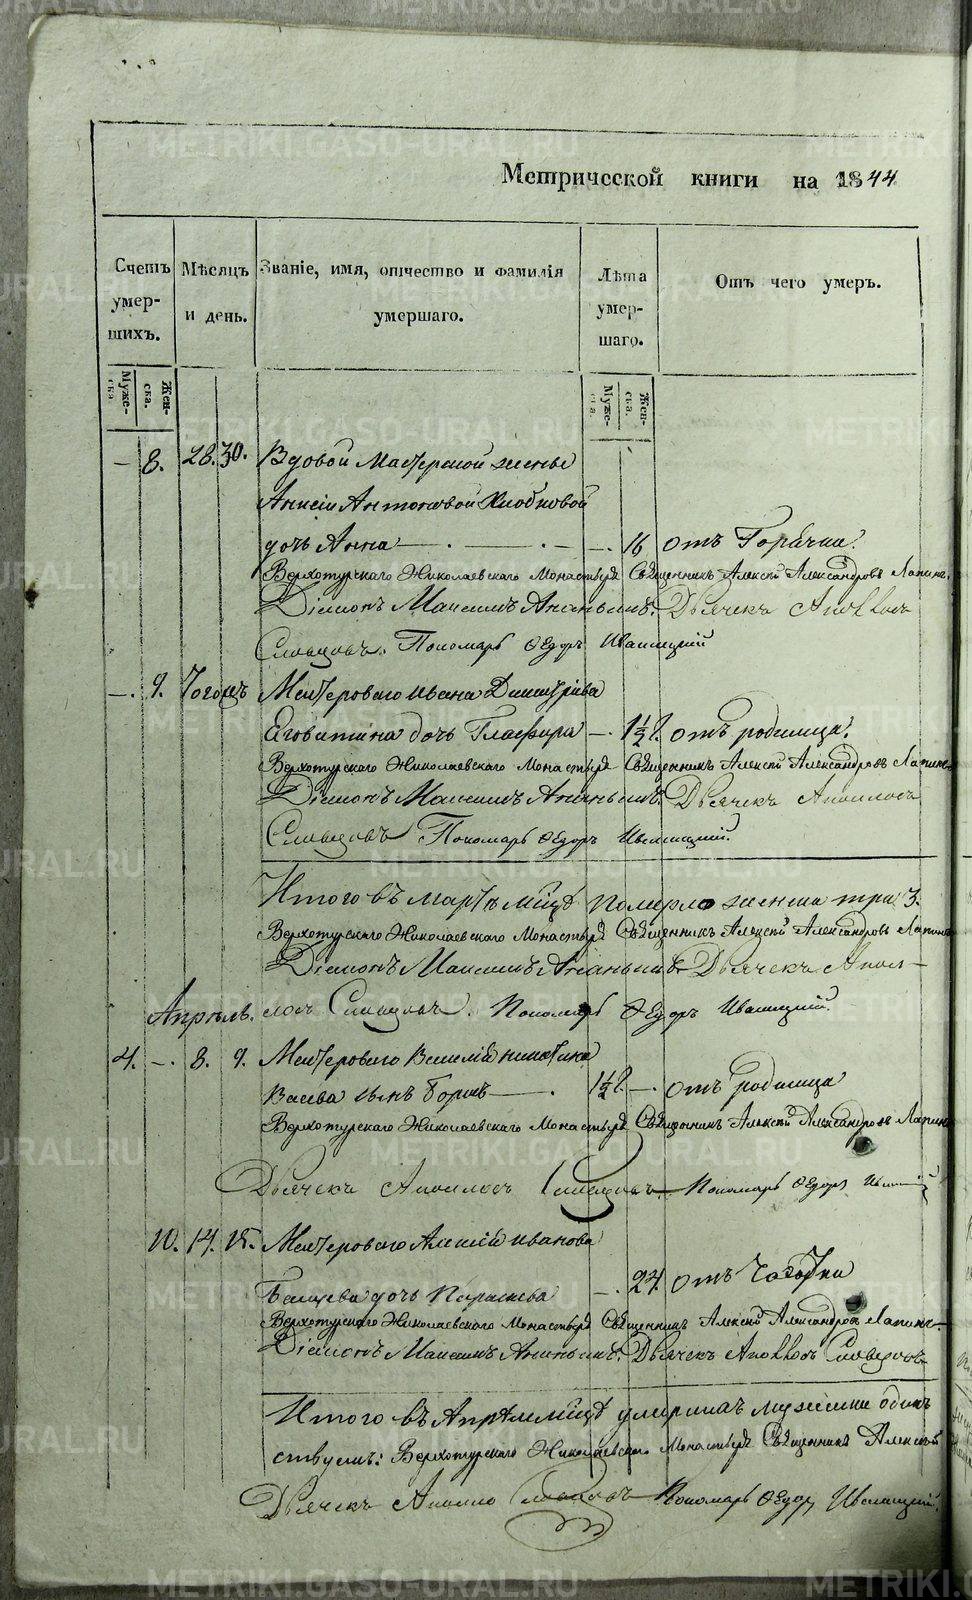 Метрической книги на 1844
Счетъ умер- шихъ.
Мѣсяцъ и день.
Званіе, имя, отчество и фамилія умершаго.
Лѣта умер- шаго.
Отъ чего умеръ.
Муже- ска. Жен- ска.
Муже- ска. Жен- ска.
— 8. 28. 30. Вдовой Мастерской женье
Антоновой
дочь Анна — . — . — —. 16 отъ Горячки.
Верхотурскаго Николаевскаго Монастыря Священникъ Алексій Александровъ Лапинъ.
Діаконъ Максимъ Ананьинъ. Дьячекъ Аполлосъ
Словцовъ. Пономарь Ѳедоръ Иваницкій
—. 9. Тогожъ Мастероваго Ивана Димитріева
дочь Глафира —. 1½ г. отъ родимца.
Верхотурскаго Николаевскаго Монастыря Священникъ Алексій Александровъ Лапинъ
Діаконъ Максимъ Ананьинъ. Дьячекъ Аполлосъ
Словцовъ Пономарь Ѳедоръ Иваницкій.
Итого въ мартѣ м҃цѣ померло женска три 3.
Верхотурскаго Николаевскаго Монастыря Священникъ Алексій Александровъ Лапинъ
Діаконъ Максимъ Ананьинъ Дьячекъ Апол-
Апрѣль. лосъ Словцовъ. Пономарь Ѳедоръ Иваницкій.
4. —. 8. 9. Мастероваго Василія Никитина
сынъ Борисъ — . 1½ г. —. отъ родимца
Верхотурскаго Николаевскаго Монастыря Священникъ Алексій Александровъ Лапинъ
Дьячекъ Аполлосъ Словцовъ. Пономарь Ѳедоръ
10. 14. Мастероваго Алексія Иванова
дочь Параскева —. 24. отъ Чахотки
Верхотурскаго Николаевскаго Монастыря Священникъ Алексій Александровъ Лапинъ.
Діаконъ Максимъ Ананьинъ. Дьячекъ Аполлосъ Словцовъ
Итого въ Апрѣлѣ м҃цѣ мужеска одинъ
Верхотурскаго Николаевскаго Монастыря Священникъ Алексій
Дьячекъ Аполло Словцовъ Пономарь Ѳедоръ Иваницкій.
METRIKI.GASO-URAL.RU